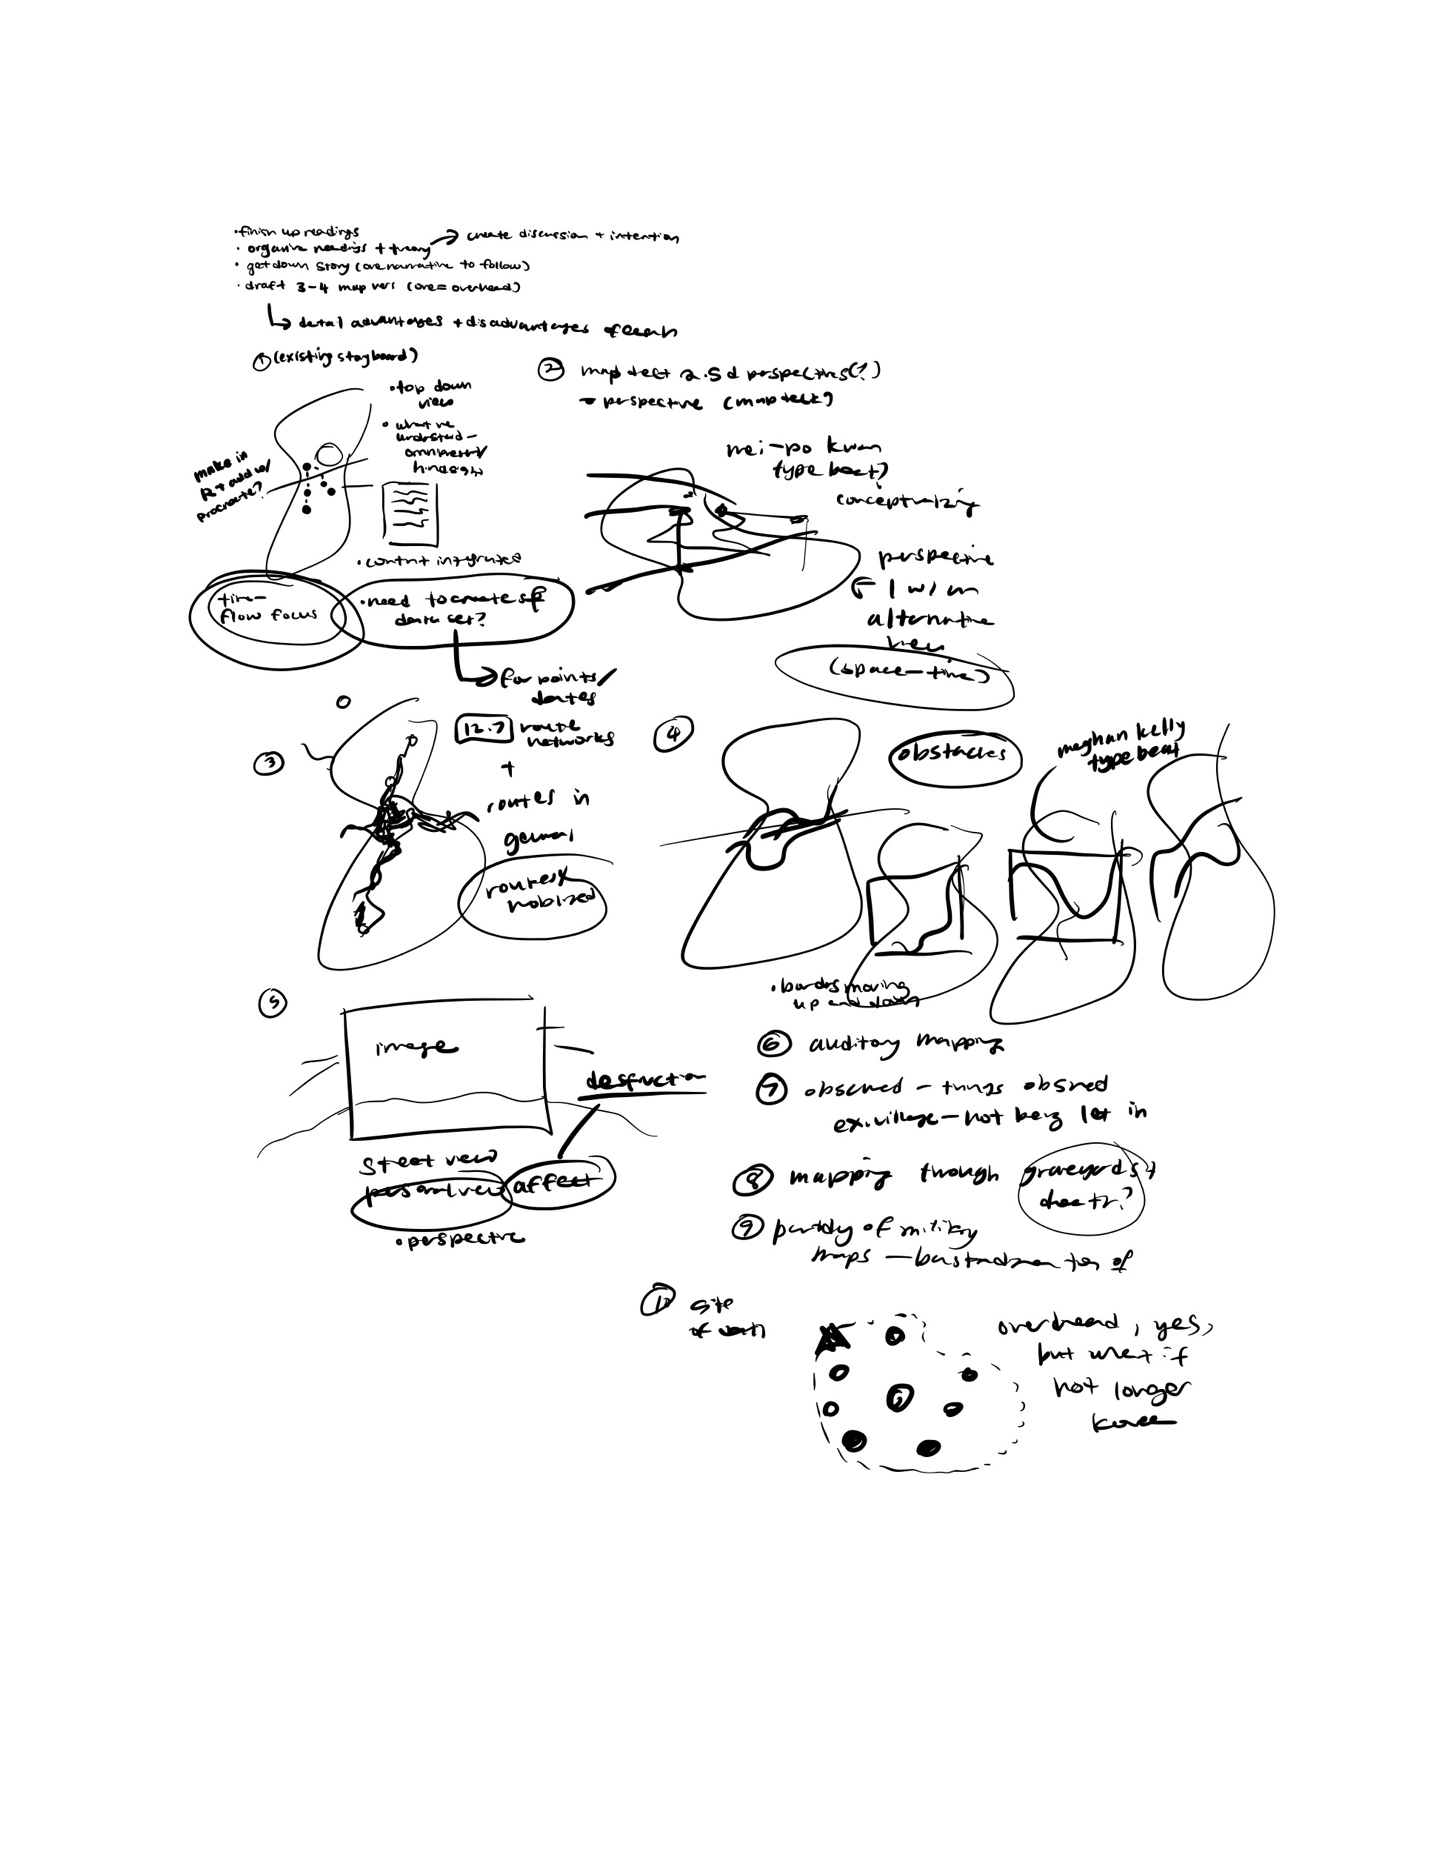 •finish up readings
• organize readings + theory → create discussion + intention
• get down story (one narrative to follow)
• draft 3-4 map vers (one = overhead)
↳ detail advantages + disadvantages of each
① (existing storyboard)
•top down
view
• what we
understand –
omnipresent/
hindsight
make in
R + add w/
procreate?
• content integrated
time –
flow focus
•need to create sf
data set?
→ for points/
dates
12.7 route
networks
+
routes in
general
routes
② map deck 2.5d perspectives(?)
perspective (mapdeck)
mei-po kwan
type beat?
conceptualizing
perspective
w/ an
alternative
view
(space-time)
③
④
obstacles
meghan kelly
type beat
• borders moving
up and down
⑤
image
destruction
street view
personal view
affect
• perspective
⑥ auditory mapping
⑦ obscured – things obscured
ex. village – not being let in
⑧ mapping though graveyards +
death?
⑨ parody of military
maps —
site
of death
overhead, yes,
but what if
not longer
korea